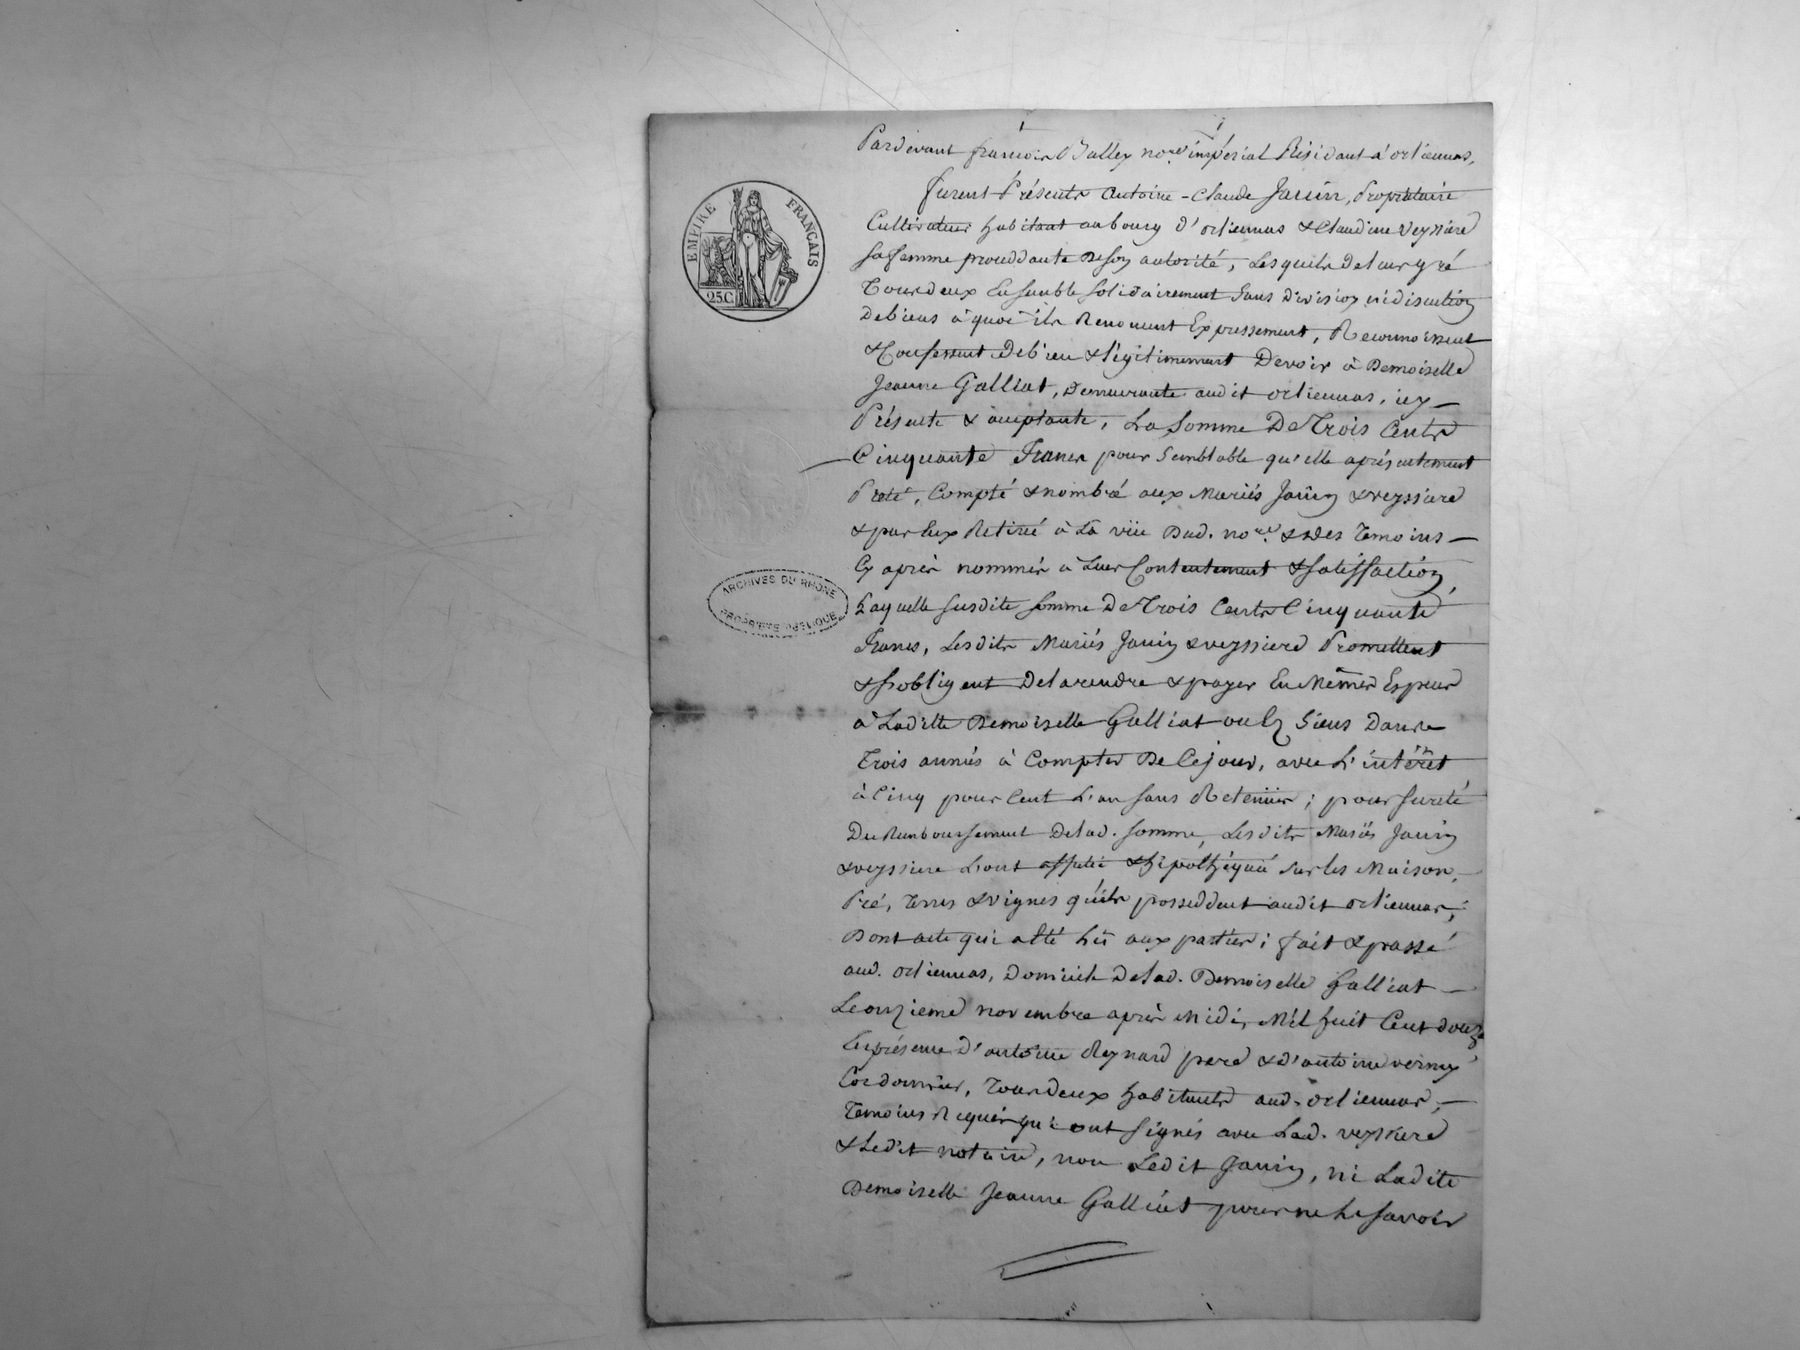 EMPIRE FRANÇAIS
25C.
ARCHIVES DU RHÔNE
PROPRIÉTÉ PUBLIQUE
Pardevant francois Balley no.re impérial Résidant a orliennas,
furent Présents antoine-Claude Jauin, Propriétaire
Cultivateur habitant au bourg d'orliennas & Claudine Veyssiere
sa femme procéddante de son autorité, Lesquels de leur gré
Tous deux Ensemble solidairement sans division ni discution
de biens à quoi ils Renoncent Expressement, Reconnoissent
& Confessent de bien & légitimement Devoir à Demoiselle
Jeanne Galliat, demeurante audit orliennas, icy
Présente & acceptante, La somme De Trois Cents
Cinquante francs pour semblable qu'elle a présentement
Preté, Compté & nombré aux Mariés Jauin & veyssiere
& par Eux Retiré à La vüe Dud. no.re & des Temoins
Cy après nommés à Leur Contentement & satisfaction,
Laquelle susdite somme De Trois Cents Cinquante
francs, Lesdits Mariés Jauin & veyssiere Promettent
& s'obligent De la rendre & payer En Mêmes Especes
à Ladite Demoiselle Galliat ou Es Siens Dans
Trois années à Compter De Ce jour, avec L'intérêt
à Cinq pour Cent L'an sans Retenüe; pour sureté
Du Remboursement De lad. somme, Lesdits Mariés Jauin
& veyssiere L'ont affecté & hipothéqué sur les Maison,
Pré, Terres & vignes qu'ils posseddent audit orliennas;
Dont acte qui a été Lû aux parties; fait & passé
aud. orliennas, Domicile De lad. Demoiselle Galliat
Le onzieme novembre après Midi, Mil huit Cent douze
En présence d'antoine Reynard pere & d'antoine verney
Cordonnier, Tous deux habitants aud. orliennas,
Temoins Requis qui ont signés avec Lad. veyssiere
& Ledit notaire, non Ledit Jauin, ni Ladite
Demoiselle Jeanne Galliat pour ne Le savoir